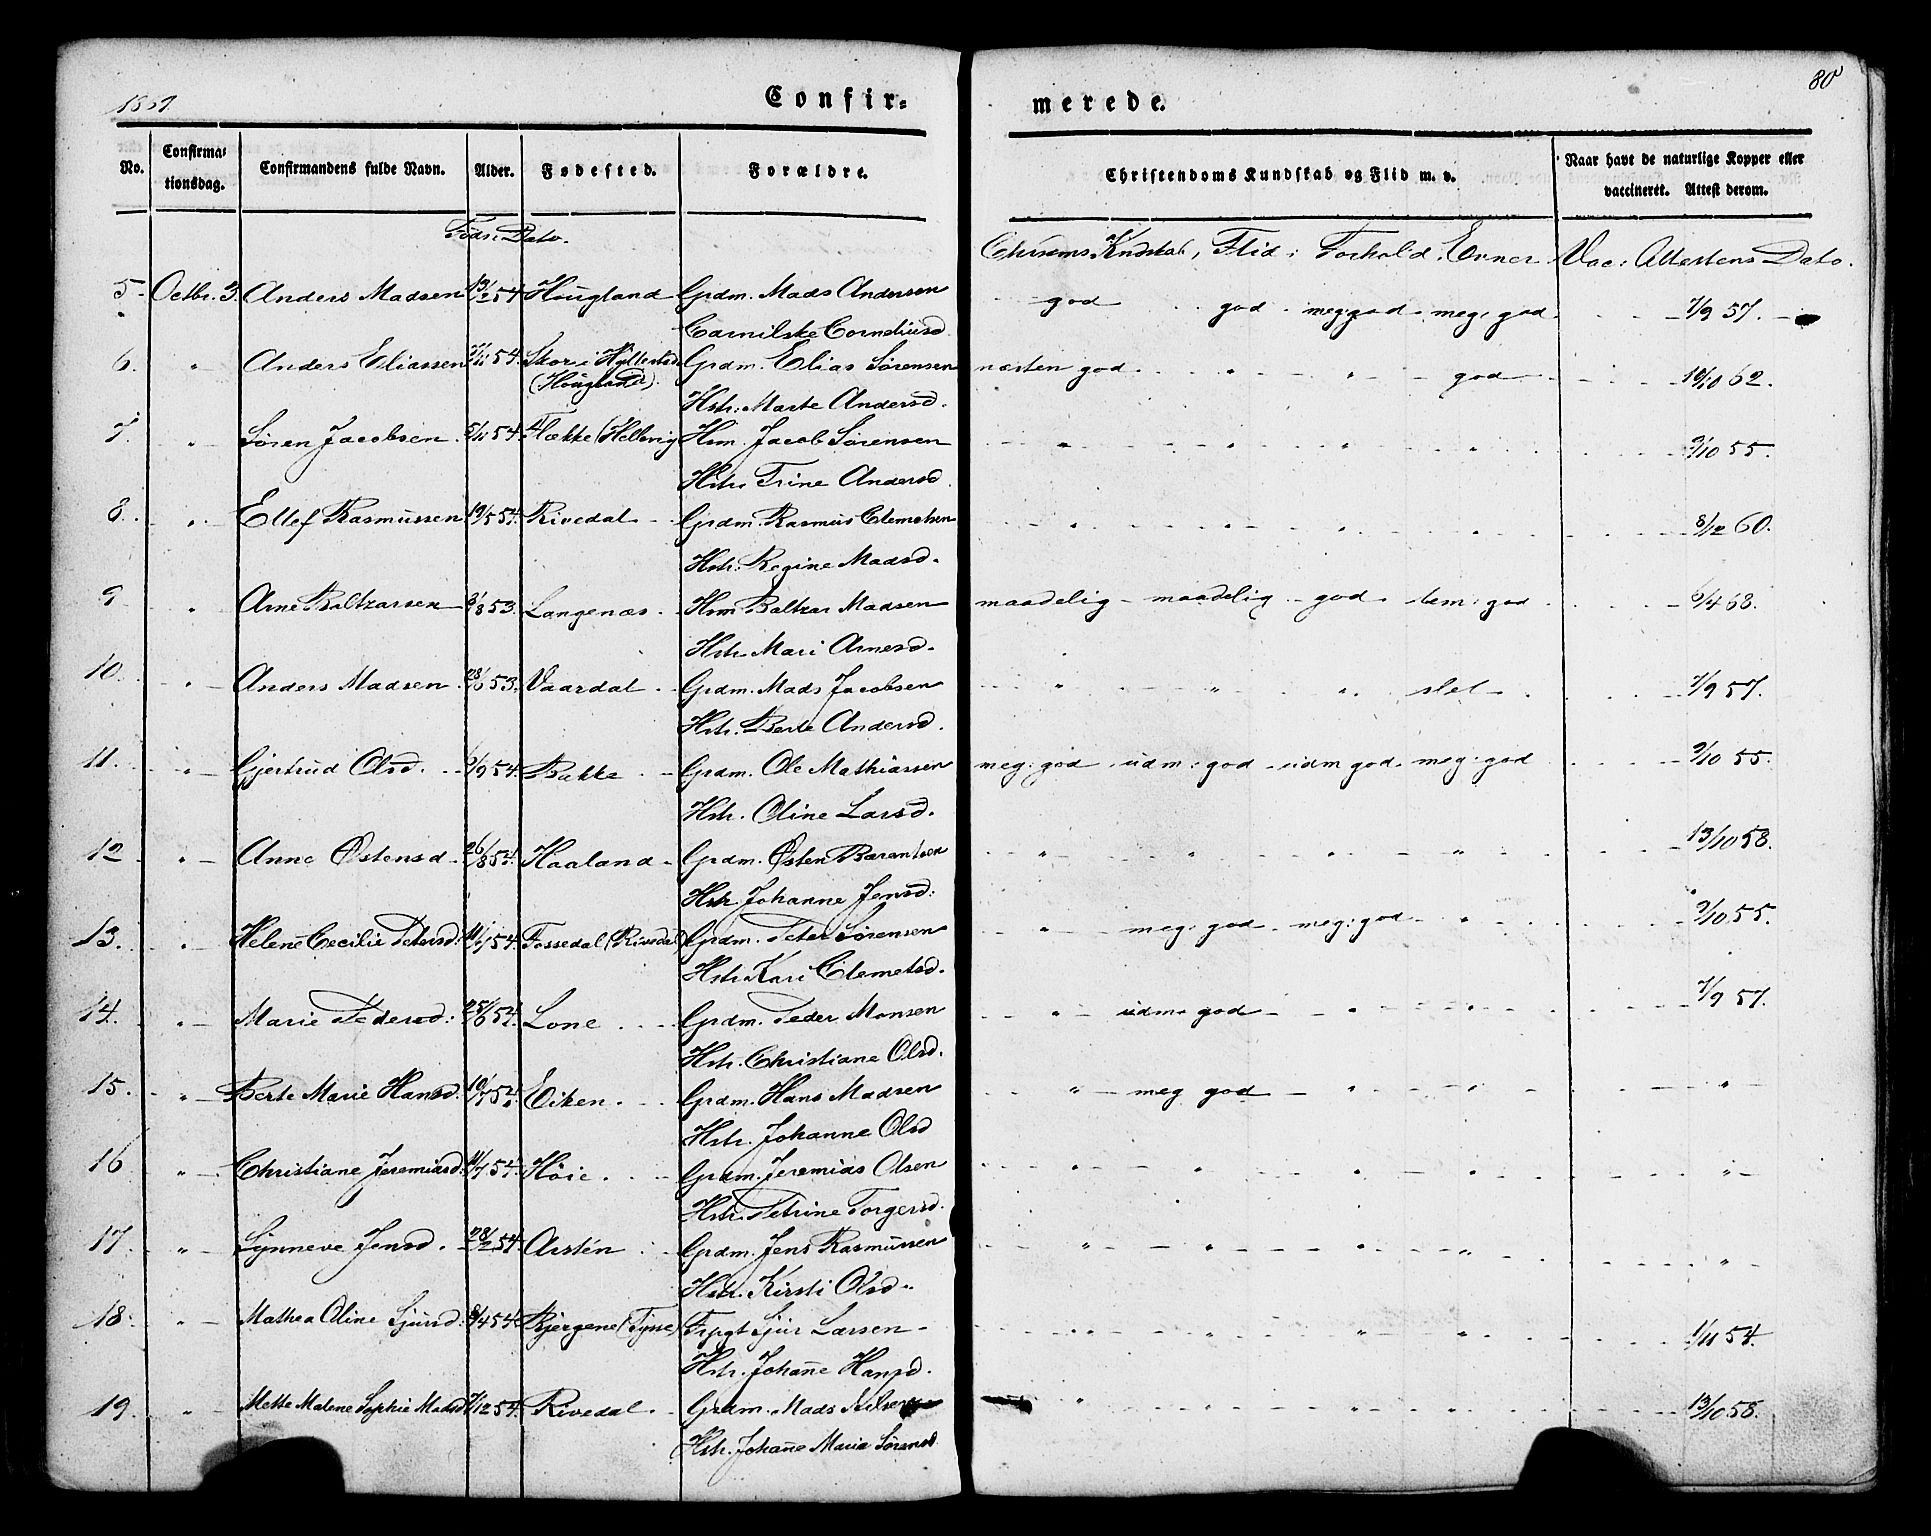 1869
80
Confir= merede.
No. Confirma= tionsdag. Confirmandens fulde Navn. Alder. Fødested. Forældre. Christendoms Kundskab og Flid m. v. Naar havt de naturlige Kopper eller vaccineret. Attest derom.
Føds: Dato. Flid: Forhold: Evner Vac: Attestens Dato.
5 Octbr. 3. Anders Madsen 13/2 54 Hougland Grdm. Mads Andersen god god meg: god meg: god 7/9 57.
Corneliusd.
6. " Anders Eliassen 54. Skor i Hyllestad Grdm. Elias Sørensen næsten god " " god 62.
(Hougland). Hstr: Marte Andersd.
7. " Søren Jacobsen 5/11 54. Flække (Hellevig Hsm. Jacob Sørensen " " " " 9/10 55.
Hstr. Trine Andersd.
8. " Ellef Rasmussen 19/5 54. Rivedal Grdm. Rasmus Clemetsen " " " " 8/12 60.
Hstr: Regine Madsd.
9 " Arne Baltzarsen 8 53. Langenæs Hsm Baltzar Madsen maadelig maadelig god tem: god 6/4 68.
Hstr. Mari Arnesd.
10. " Anders Madsen 53. Vaardal Grdm. Mads Jacobsen " " " slet 7/9 57.
Hstr. Berte Andersd.
11. " Gjertrud Olsd. 9 54. Bakke Grdm. Ole Mathiassen meg: god udm: god udm god meg: god 9/10 55.
Hstr. Oline Larsd.
12 " Anne Østensd 26/8 54. Haaland Grdm. Østen Barentsen " " " " 13/10 58.
Hstr Johanne Jensd:
13. " Helene Cecilie Petersd: 54. Fossedal (Rivedal) Grdm. Peter Sørensen " meg: god meg: god " 9/10 55.
Hstr. Kari Clemetsd.
14. " Marie Pedersd: 25/6 54. Lone Grdm. Peder Monsen " udm. god " " 7/9 57.
Hstr. Christiane Olsd.
15. " Berte Marie Hansd. 54. Eiken Grdm. Hans Madsen " meg god " " "
Hstr. Johanne Olsd
16 " Christiane Jeremiasd. 54. Høie Grdm. Jeremias Olsen " " " " "
Hstr. Petrine Torgersd.
17. " Synneve Jensd. 28/2 54. Aasteen Grdm. Jens Rasmussen " " " " "
Hstr. Kirsti Olsd.
18. " Mathea Oline Sjursd. 8/4 54. Bjergene (Tysse) Sjur Larsen " " " " 1/11 54.
Hstr. Johanne Hansd.
19. " Mette Malene Sophie Madsd 7/12 54. Rivedal Grdm. Mads Nilsen " " " " 13/10 58.
Hstr. Johanne Maria Sørensd